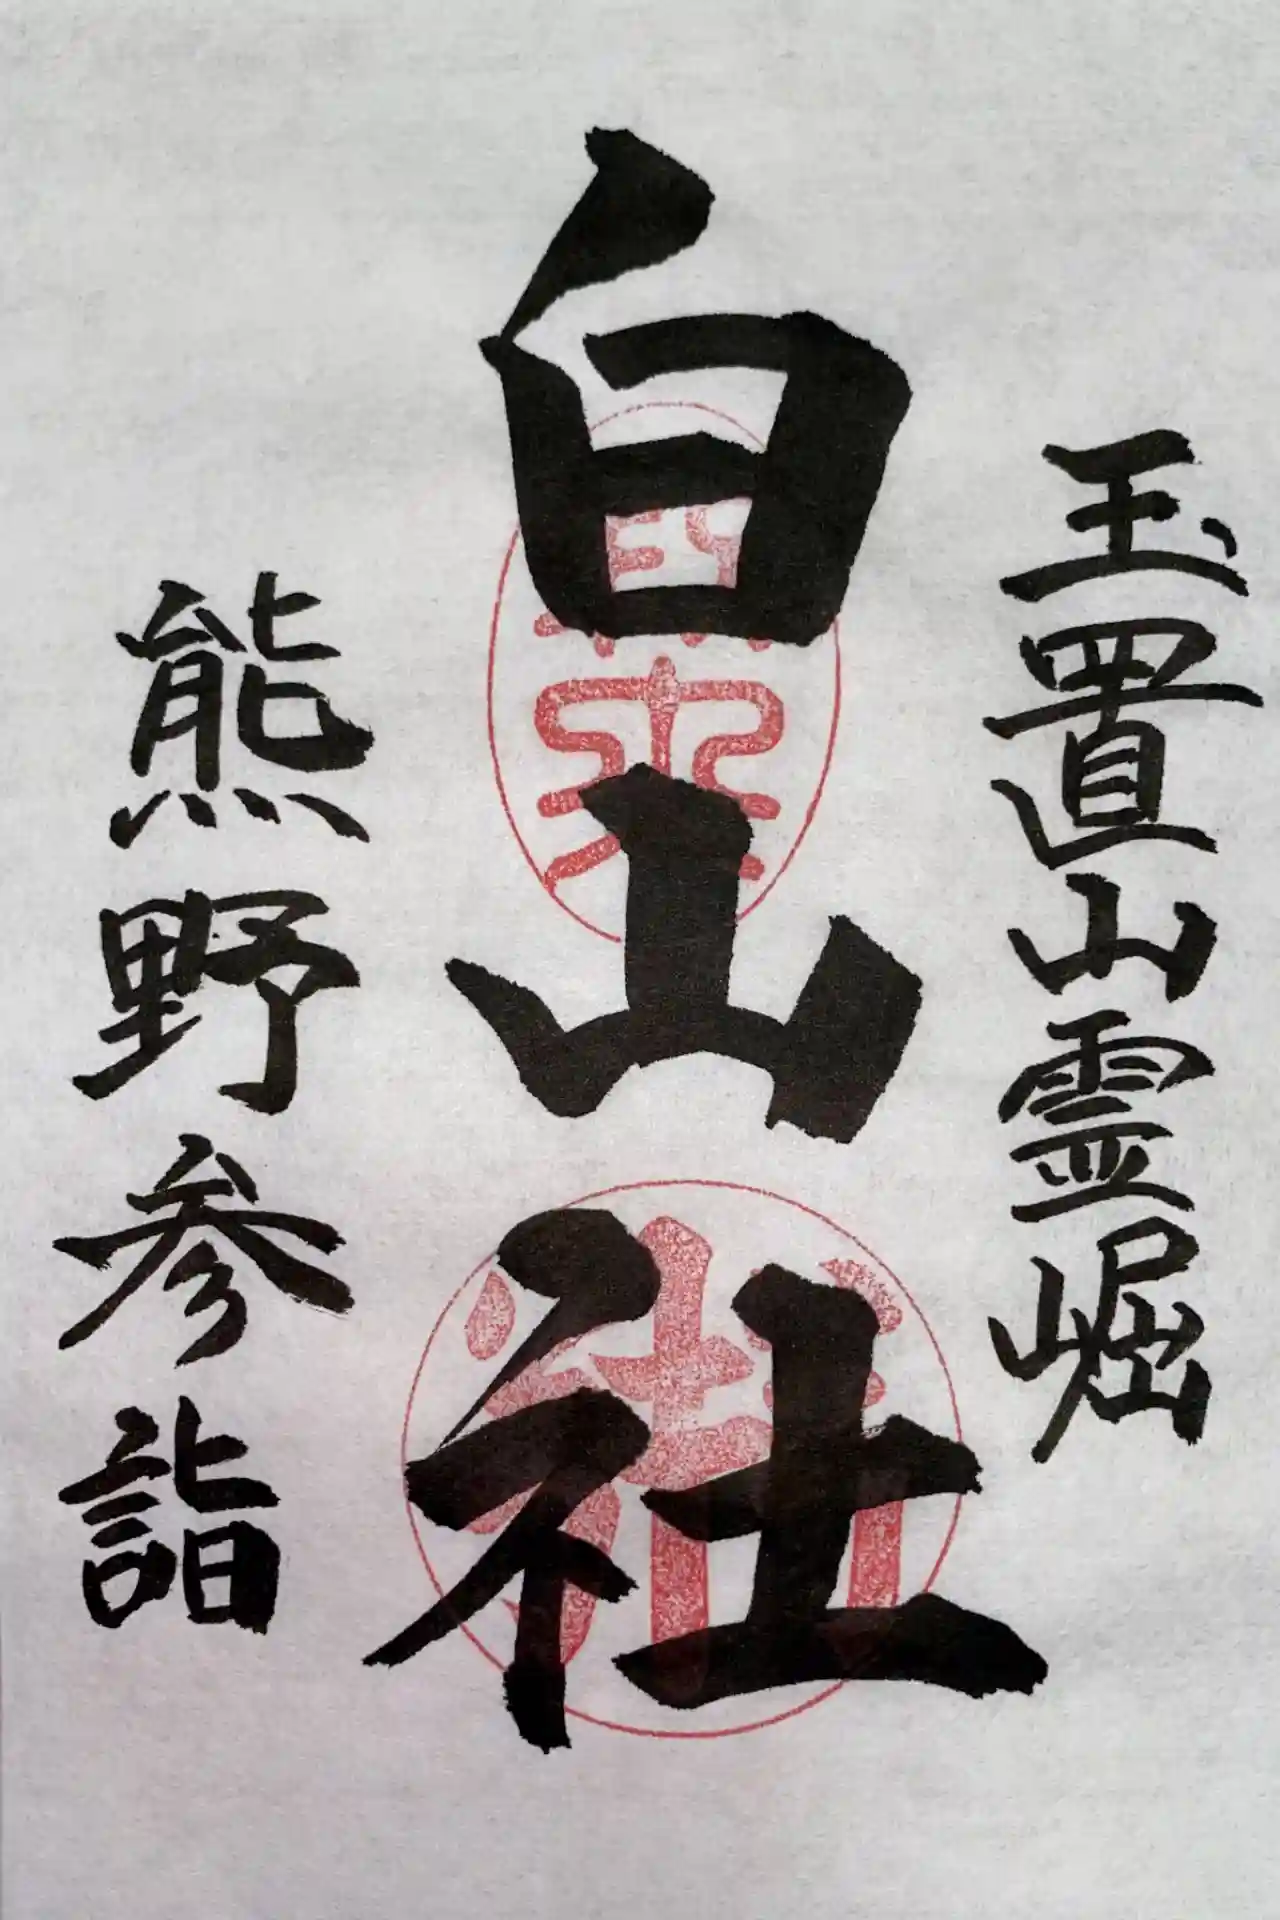 玉置山霊崛
白山社
熊野参詣